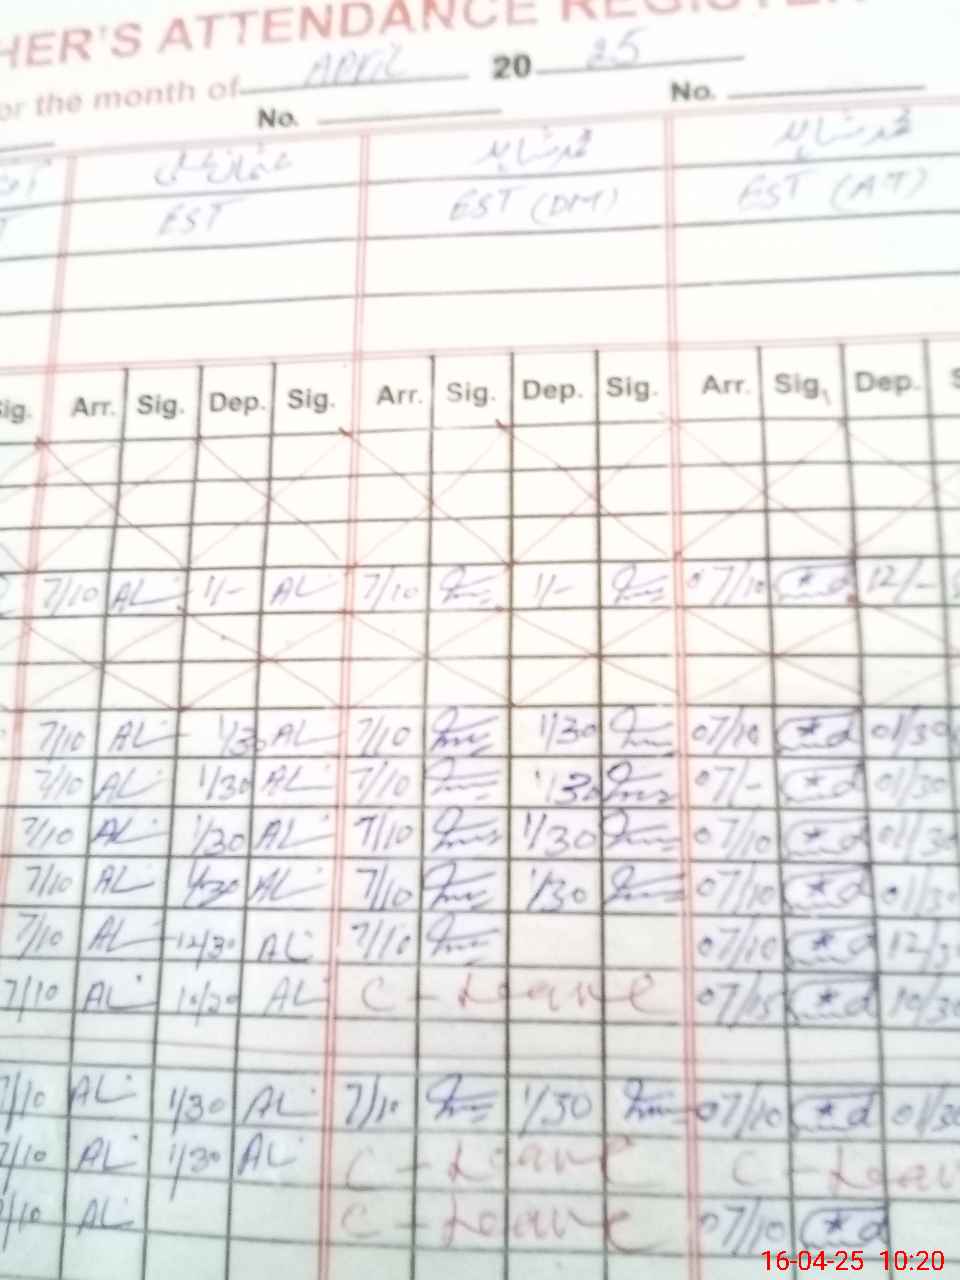 HER'S ATTENDANCE REGISTER
or the month of April 20 25
No. No.
عثمان علی محمد شاہد محمد شاہد
EST EST (DM) EST (AT)
Sig. Arr. Sig. Dep. Sig. Arr. Sig. Dep. Sig. Arr. Sig. Dep.
7/10 AL 1/- AL 7/10 1/- 07/10 12/-
7/10 AL 1/30 AL 7/10 1/30 07/10 01/30
7/10 AL 1/30 AL 7/10 1/30 07/- 01/30
7/10 AL 1/30 AL 7/10 1/30 07/10 01/30
7/10 AL 1/30 AL 7/10 1/30 07/10 01/30
7/10 AL 12/30 AL 7/10 07/10 12/3
7/10 AL 10/30 AL C - Leave 07/15 10/30
7/10 AL 1/30 AL 7/10 1/30 07/10 01/30
7/10 AL 1/30 AL C - Leave C - Leav
/10 AL C - Leave 07/10
16-04-25 10:20